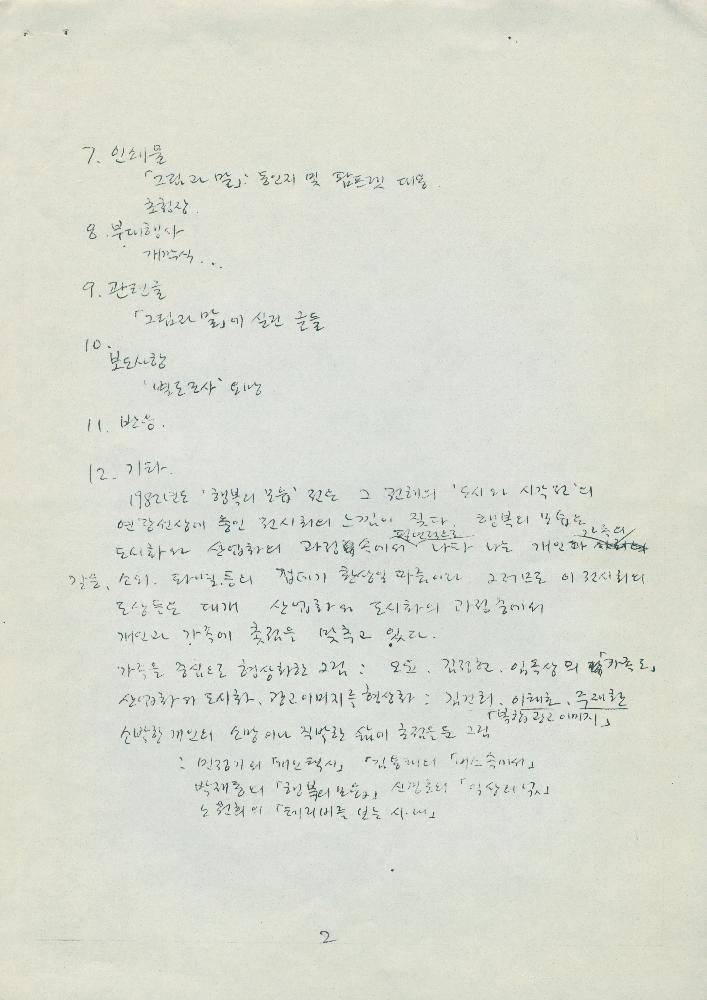 7. 인쇄물
「그림과 말」: 동인지 및 팜프렛 대용.
초청장.
8. 부대행사
개막식...
9. 관련글
「그림과 말」에 실린 글들
10.
보도사항
'별도조사' 요망
11. 반응.
12. 기타.
1982년도 '행복의 모습' 전은 그 전해의 '도시와 시각전'의
연장선상에 놓인 전시회의 느낌이 짙다. 행복의 모습은
도시화와 산업화의 과정 속에서 나타나는 개인과 가족의
갈등, 소외, 등의 이다 그러므로 이 전시회의
도상들은 대개 산업화와 도시화의 과정 중에서
개인과 가족에 촛점을 맞추고 있다.
가족을 중심으로 형상화한 그림: 오윤. 김정헌. 임옥상의 「가족도」
산업화와 도시화, 광고이미지를 형상화: 김건희. 이태호. 주재환
「복합광고이미지」
소박한 개인의 소망이나 직박한 삶에 촛점을 둔 그림
: 민정기의 「개인택시」 「김용태의 「버스속에서」
박재동의 「행복의 모습」, 신경호의 「넋」
노원희의 「테레비를 보는 사내」
2